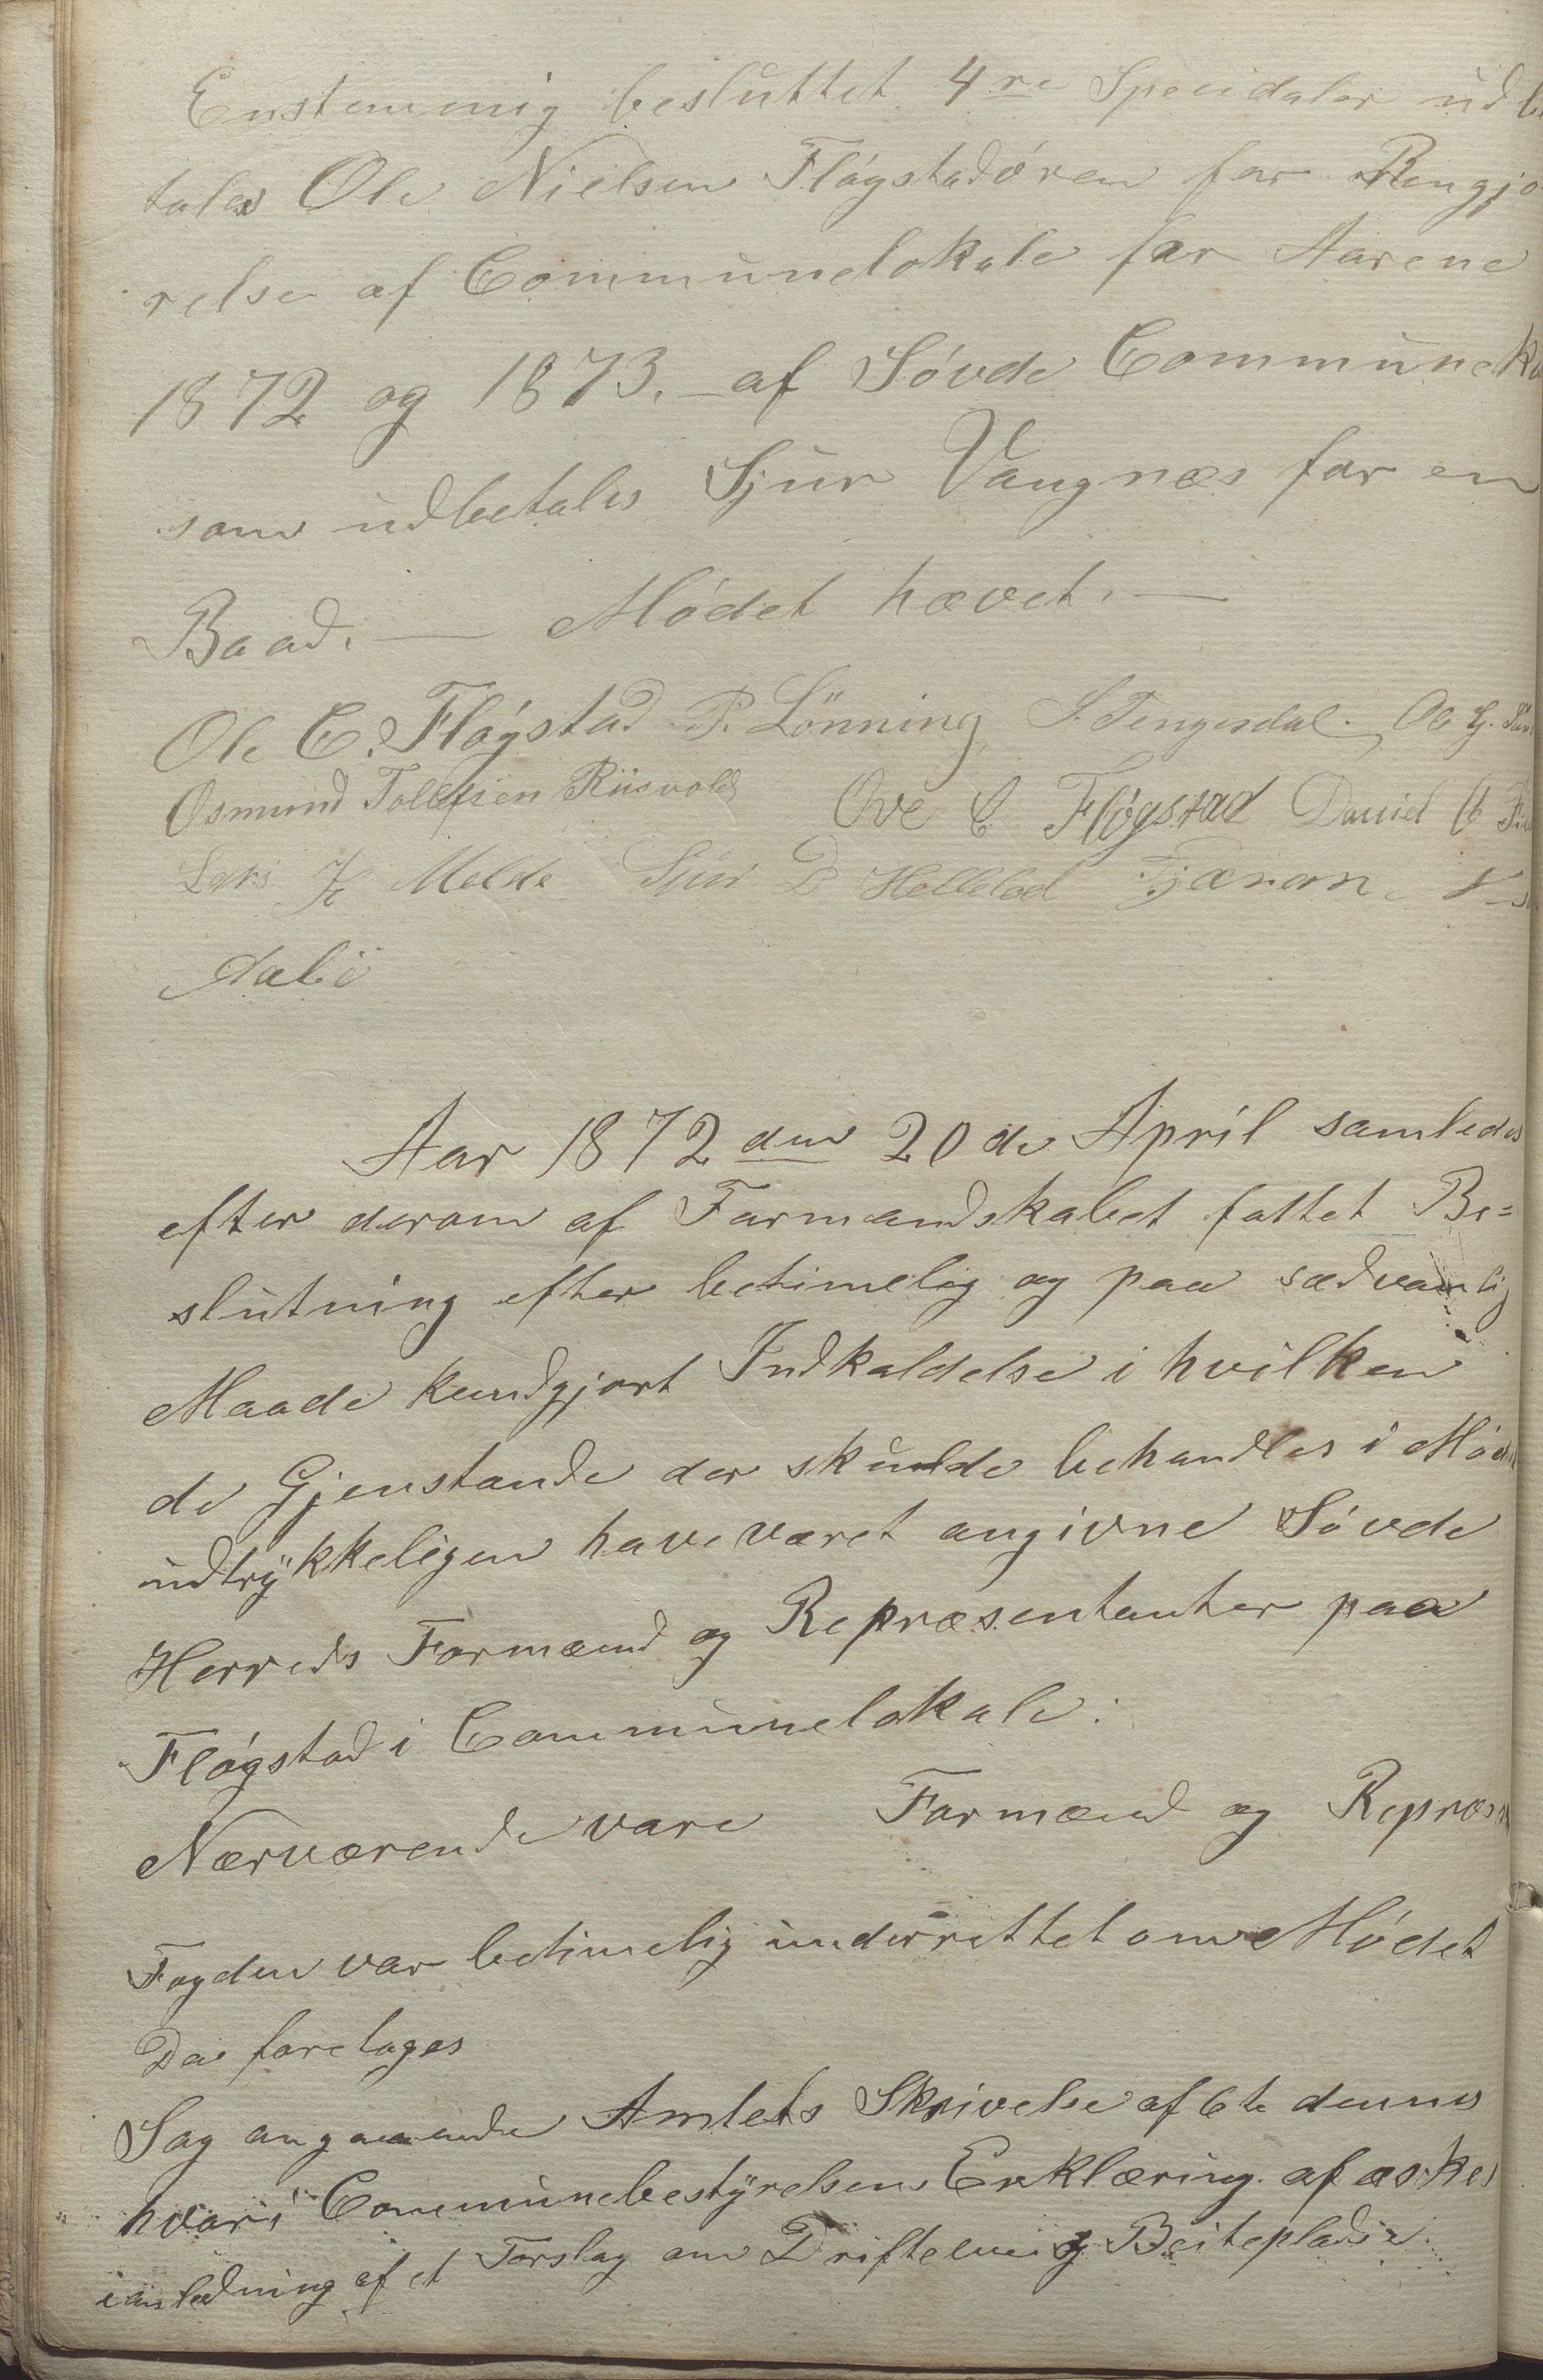 Enstemmig besluttet 4re Specidaler udb
tales Ole Nielsen Fløgstadøren for Rengjø
relse af Communelokale for Aarene
1872 og 1873. - af Søvde Communek
som udbetales Sjur Vangnæs for en
Baad. — Mødet hævet. —
Ole C. Fløgstad P. Lönning S. Tengesdal. Ole G.
Osmund Tollefsen Riisvold Ove C Fløgstad Daniel
Lars K Melde Sjur D Hellelod Fjæran.
dalö
Aar 1872 den 20de April samledes
efter derom af Formandskabet fattet Be=
slutning efter betimelig og paa sædvanlig
Maade kundgjort Indkaldelse i hvilken
de Gjenstande der skulde behandles i Mød
udtrykkeligen have været angivne Søvde
Herreds Formænd og Repræsentanter paa
Fløgstad i Communelokale:
Nærværende vare Formænd og Repræs
Fogden var betimelig underrettet om Mødet
Da foretoges
Sag angaaende Amtets Skrivelse af 6te dennes
hvori Communebestyrelsens Erklæring afæskes
i anledning af et Forslag om Driftevei og Beitepladse